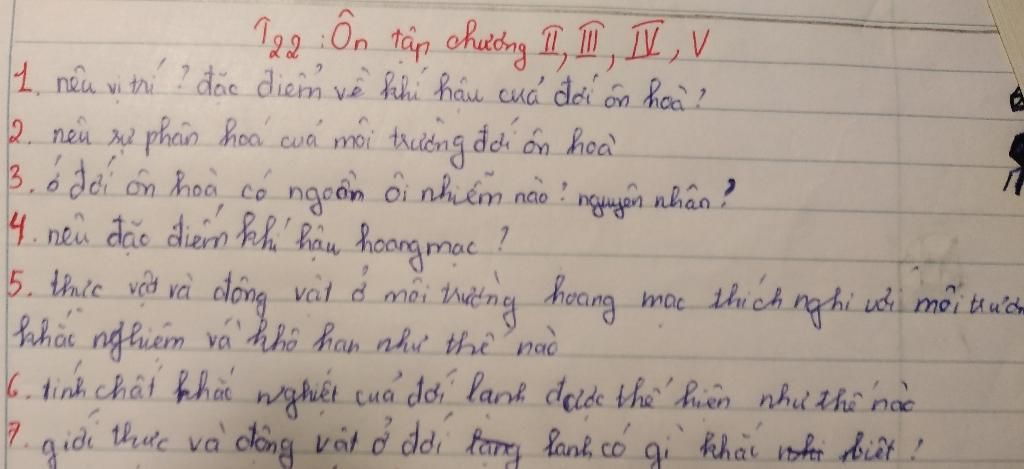 T22: Ôn tập chương II, III, IV, V
1. nêu vị trí? đặc điểm về khí hậu của đới ôn hoà?
2. nêu sự phân hoá của môi trường đới ôn hoà
3. ở đới ôn hoà có nguồn ôi nhiễm nào? nguyên nhân?
4. nêu đặc điểm khí hậu hoang mạc?
5. thực vật và động vật ở môi trường hoang mạc thích nghi với môi trườn
khắc nghiêm và khô han như thế nào
6. tính chất khắc nghiệt của đới lạnh được thể hiện như thế nào
7. giới thực và động vật ở đới lạnh có gì khác biệt?